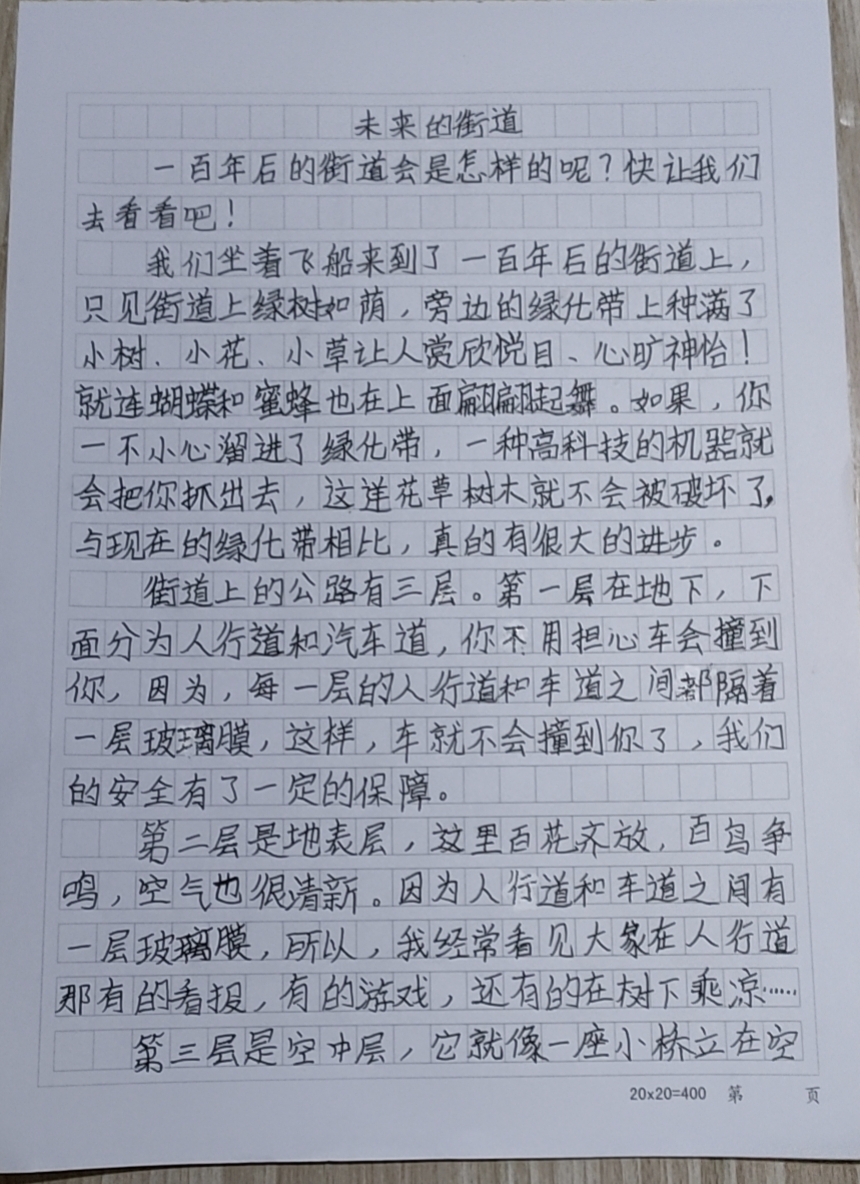 未来的街道
一百年后的街道会是怎样的呢？快让我们
去看看吧！
我们坐着飞船来到了一百年后的街道上，
只见街道上绿树如荫，旁边的绿化带上种满了
小树、小花、小草让人赏欣悦目、心旷神怡！
就连蝴蝶和蜜蜂也在上面翩翩起舞。如果，你
一不小心溜进了绿化带，一种高科技的机器就
会把你抓出去，这样花草树木就不会被破坏了，
与现在的绿化带相比，真的有很大的进步。
街道上的公路有三层。第一层在地下，下
面分为人行道和汽车道，你不用担心车会撞到
你，因为，每一层的人行道和车道之间都隔着
一层玻璃膜，这样，车就不会撞到你了，我们
的安全有了一定的保障。
第二层是地表层，这里百花齐放，百鸟争
鸣，空气也很清新。因为人行道和车道之间有
一层玻璃膜，所以，我经常看见大家在人行道
那有的看报，有的游戏，还有的在树下乘凉……
第三层是空中层，它就像一座小桥立在空
20x20=400 第 页